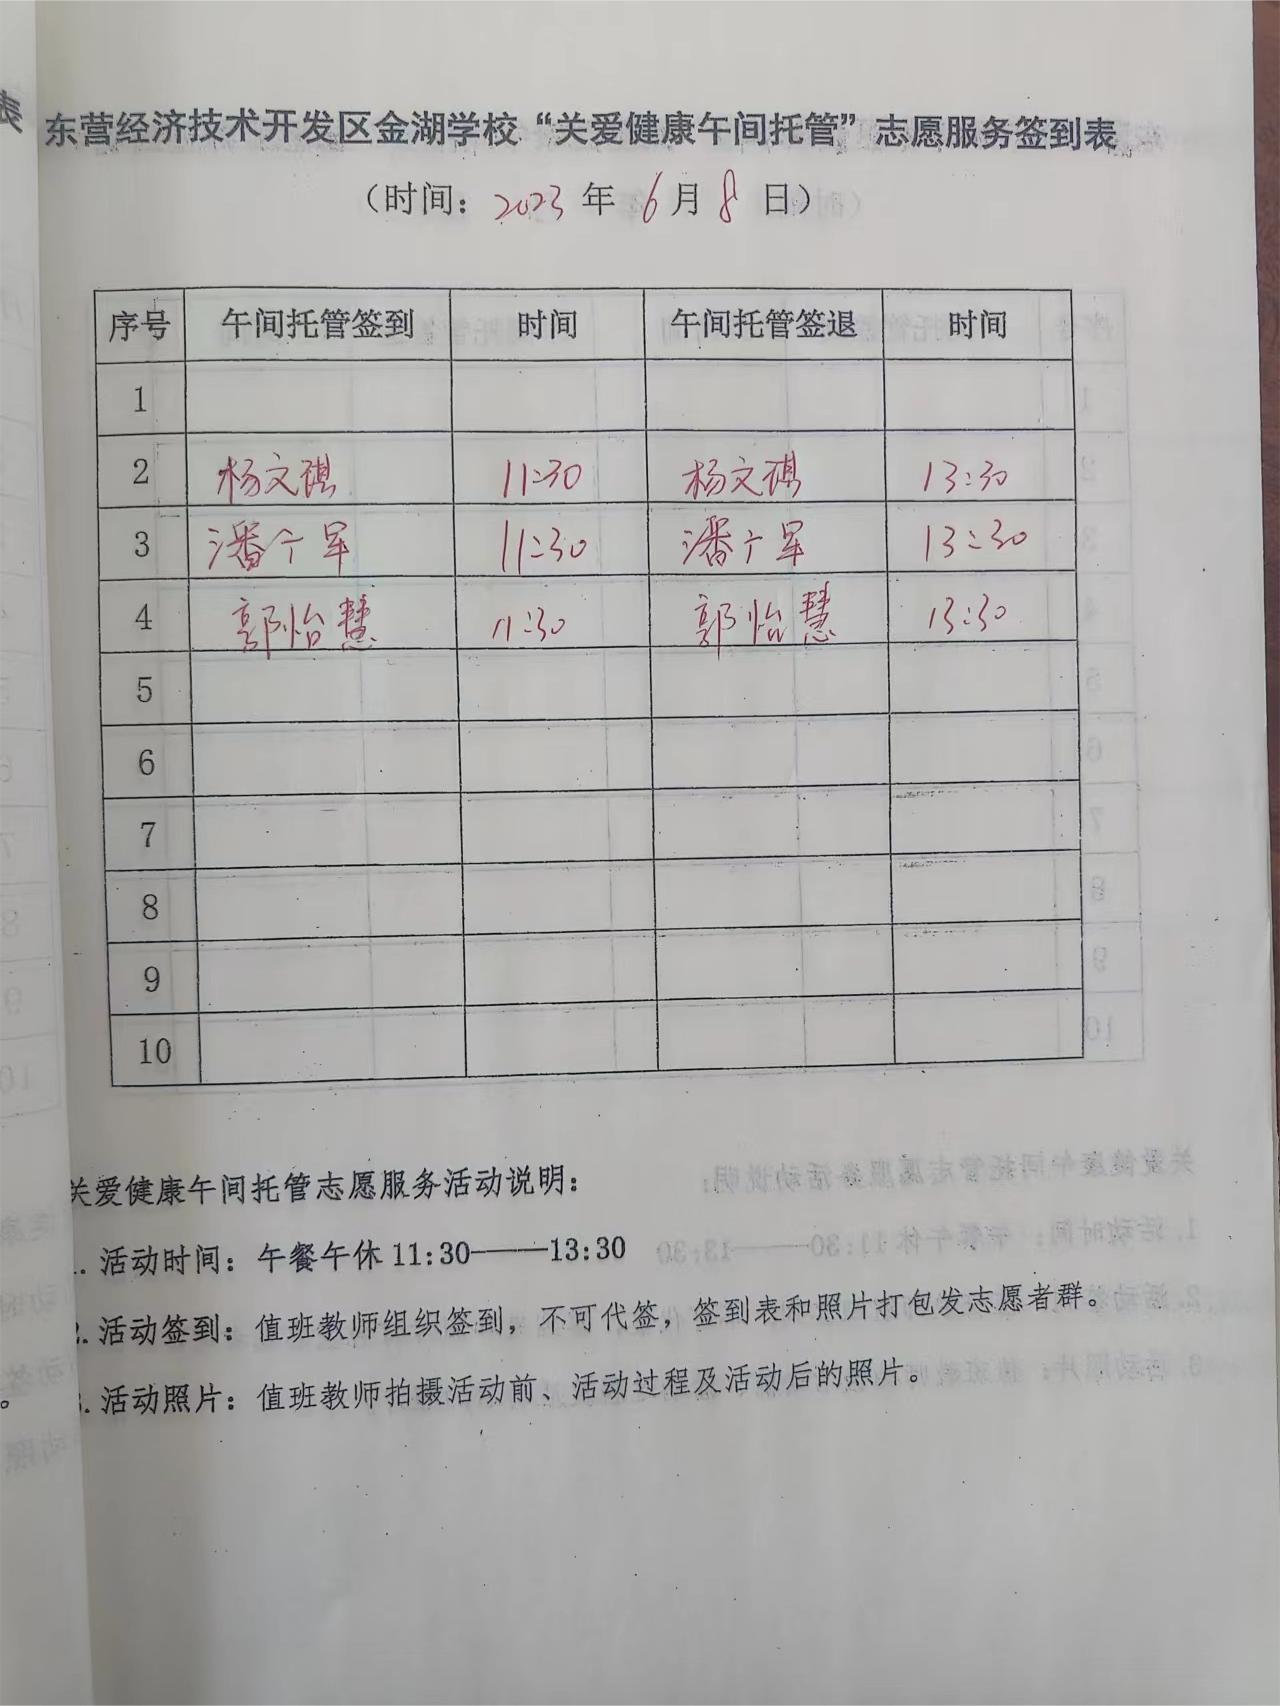 东营经济技术开发区金湖学校“关爱健康午间托管”志愿服务签到表
（时间：2023年6月8日）
序号 午间托管签到 时间 午间托管签退 时间
1
2 杨文祺 11:30 杨文祺 13:30
3 潘个军 11:30 潘个军 13:30
4 郭怡慧 11:30 郭怡慧 13:30
5
6
7
8
9
10
关爱健康午间托管志愿服务活动说明：
1. 活动时间：午餐午休11:30——13:30
2. 活动签到：值班教师组织签到，不可代签，签到表和照片打包发志愿者群。
3. 活动照片：值班教师拍摄活动前、活动过程及活动后的照片。